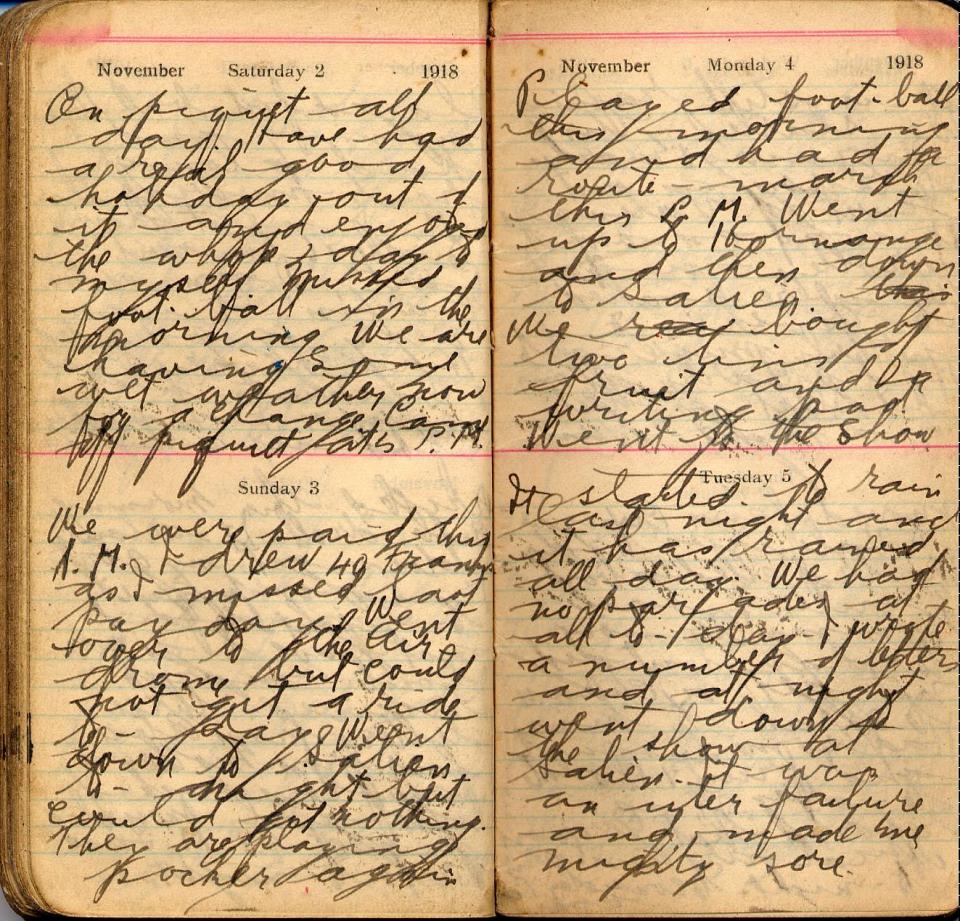 November Saturday 2 1918
On piquet all
day. Have had
a real good
holiday out of
it and enjoyed
the whole day to
myself Missed
foot-ball in the
morning We are
having some
wet weather now
for a change Came
off piquet at 5 P.M.
Sunday 3
We were paid this
A.M. I drew 40 Francs
as I missed last
pay day. Went
over to the Air
drome but could
not get a ride
to-day. Went
down to Salien
to-night but
could got nothing.
They are playing
pocker again
November Monday 4 1918
Played foot-ball
this morning
and had a
route-march
this P.M. Went
up to
and then down
to Salien
We bought
two tins
fruit and a
writing pad
Went to the show
Tuesday 5
It started to rain
last night and
it has rained
all day. We had
no parades at
all to-day. I wrote
a number of letters
and at night
went down to
the show at
Salien. it was
an uter failure
and made me
mighty sore.